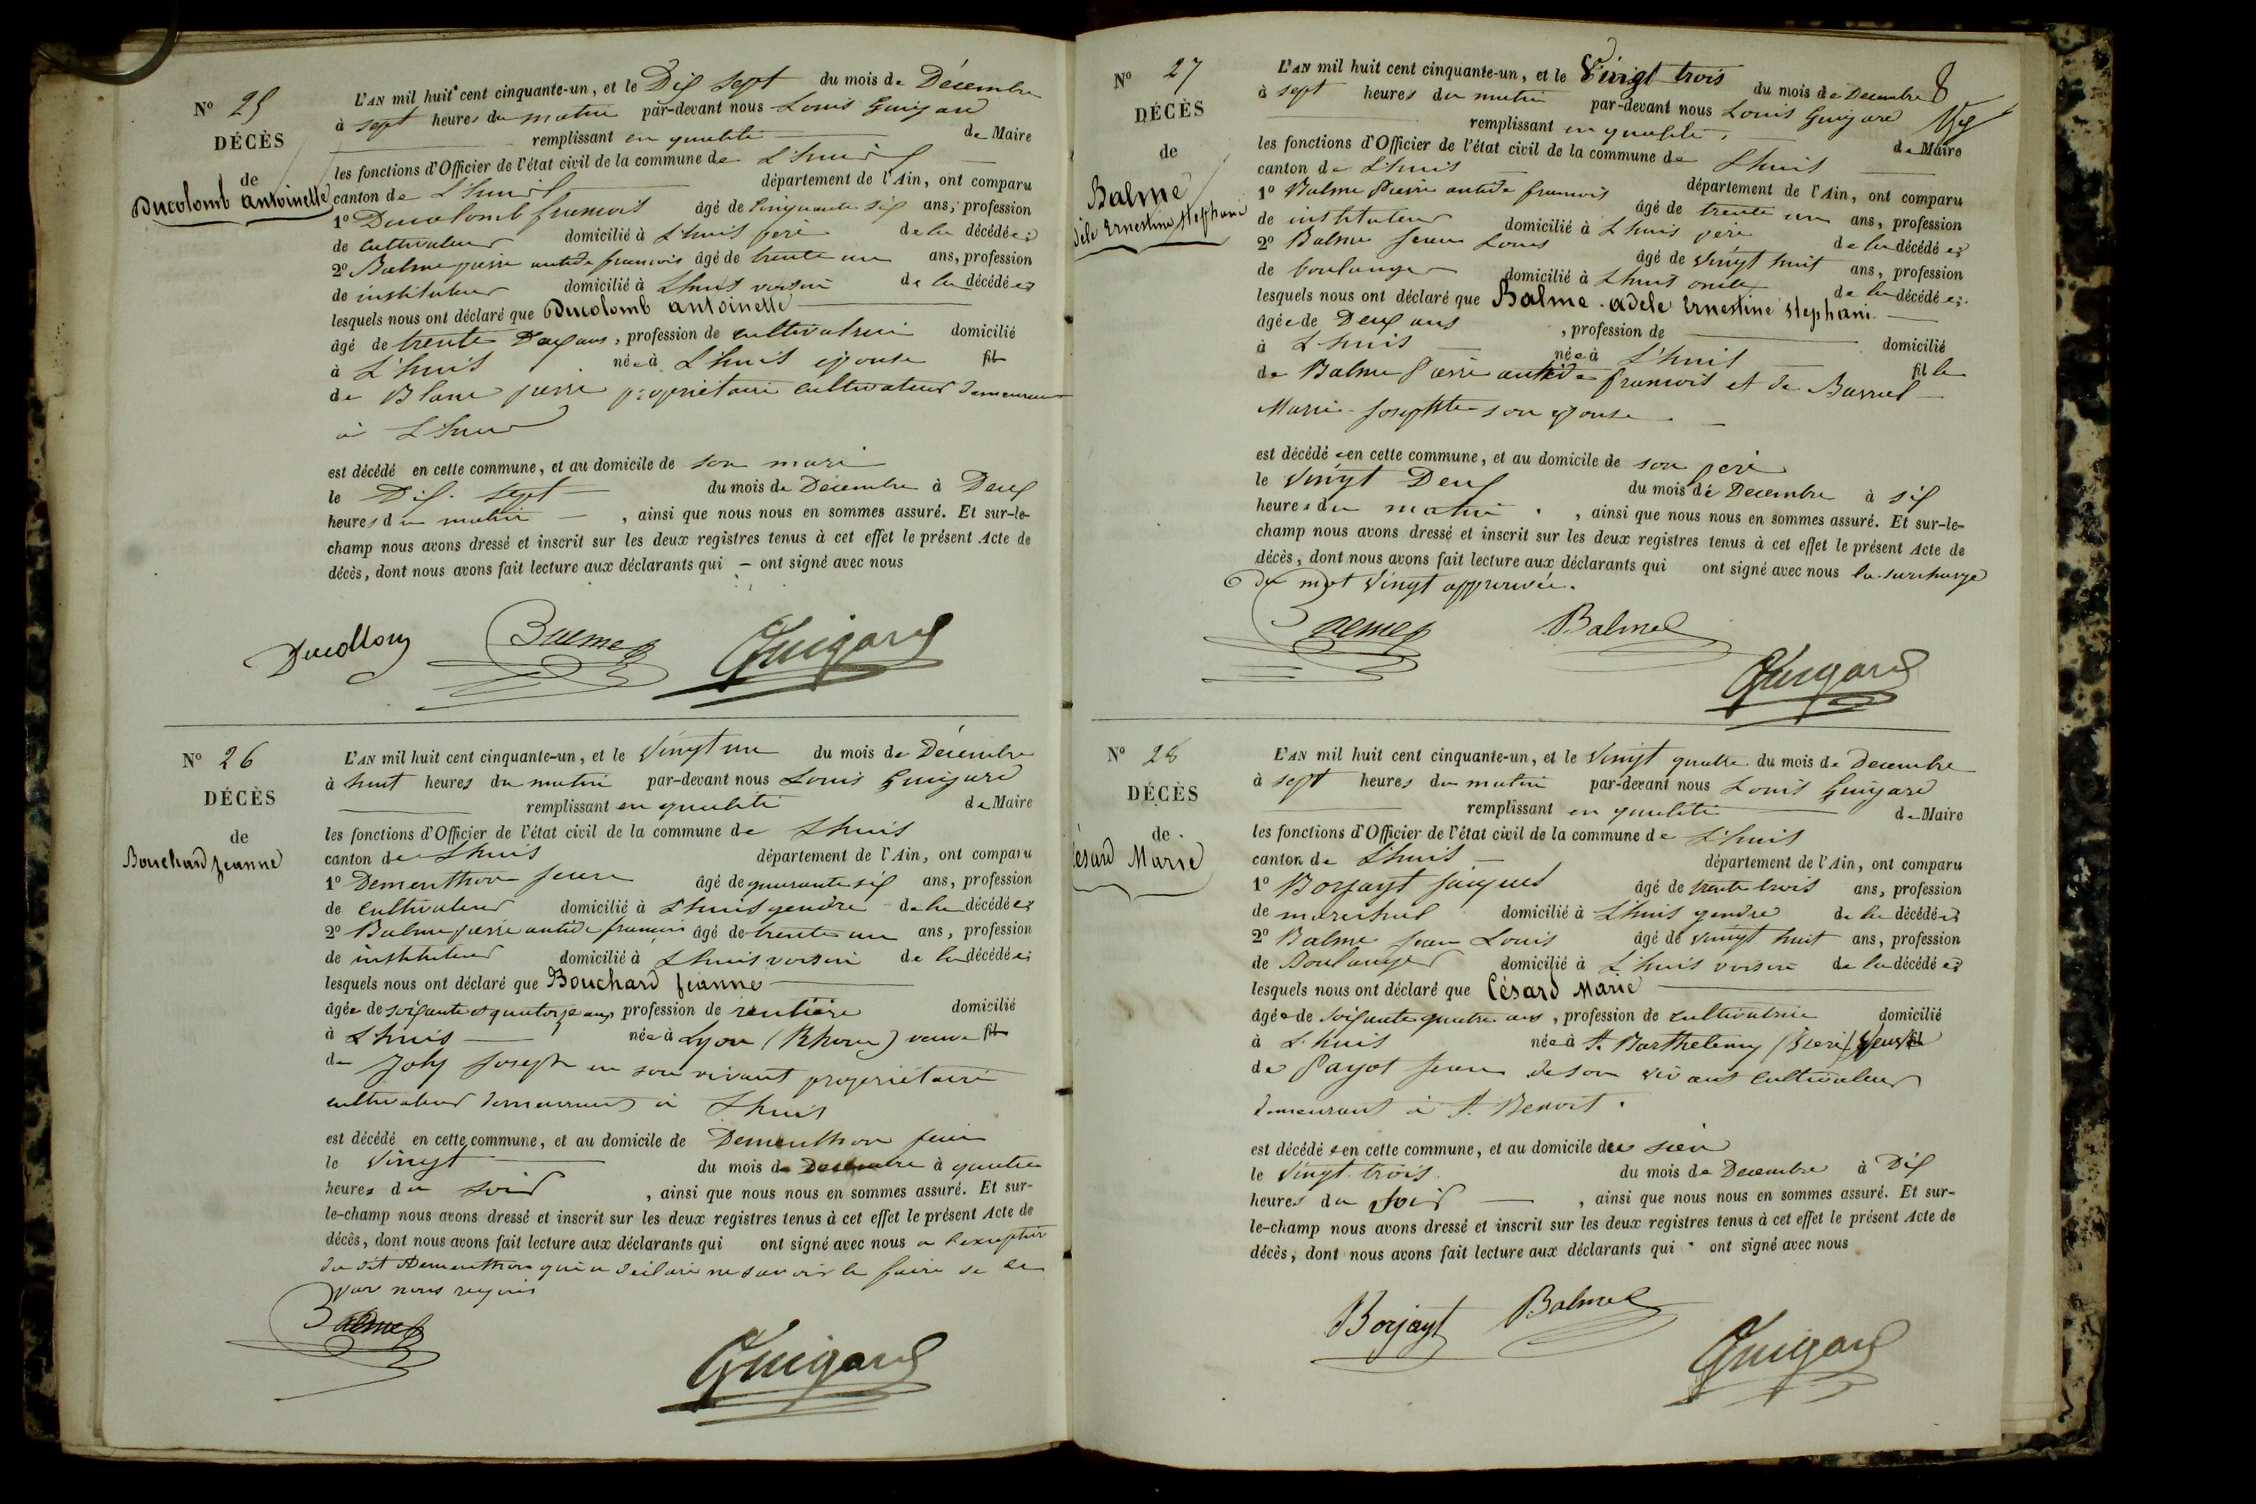 N° 25
DÉCÈS
de
Ducolomb antoinette
L'AN mil huit cent cinquante-un, et le Dix sept du mois de Décembre
à sept heures du matin par-devant nous Louis Guigard
remplissant en qualité de Maire
les fonctions d'Officier de l'état civil de la commune de L'huis
canton de L'huis département de l'Ain, ont comparu
1° Ducolomb francois âgé de Cinquante six ans, profession
de cultivateur domicilié à L'huis père de la décédée
2° Balme pierre antide francois âgé de trente un ans, profession
de instituteur domicilié à Lhuis voisin de la décédée
lesquels nous ont déclaré que Ducolomb antoinette
âgé de trente Deux ans, profession de cultivatrice domicilié
à L'huis née à L'huis épouse fil
de Blanc pierre propriétaire cultivateur demeurant
à Lhuis
est décédé en cette commune, et au domicile de son mari
le Dix sept du mois de Décembre à Deux
heures du matin, ainsi que nous nous en sommes assuré. Et sur-le-
champ nous avons dressé et inscrit sur les deux registres tenus à cet effet le présent Acte de
décès, dont nous avons fait lecture aux déclarants qui – ont signé avec nous
Balme Guigard
N° 26
DÉCÈS
de
Bouchard jeanne
L'AN mil huit cent cinquante-un, et le vingt un du mois de Décembre
à huit heures du matin par-devant nous Louis Guigard
remplissant en qualité de Maire
les fonctions d'Officier de l'état civil de la commune de Lhuis
canton de Lhuis département de l'Ain, ont comparu
1° Dementhon jean âgé de quarante six ans, profession
de cultivateur domicilié à Lhuis gendre de la décédée
2° Balme pierre antide francois âgé de trente un ans, profession
de instituteur domicilié à Lhuis voisin de la décédée
lesquels nous ont déclaré que Bouchard jeanne
âgée de soixante et quatorze ans, profession de rentière domicilié
à L'huis née à Lyon (Rhone) veuve fil
de Joly joseph en son vivant propriétaire
cultivateur demeurant à Lhuis
est décédé en cette commune, et au domicile de Dementhon jean
le vingt du mois de Décembre à quatre
heures du soir, ainsi que nous nous en sommes assuré. Et sur-
le-champ nous avons dressé et inscrit sur les deux registres tenus à cet effet le présent Acte de
décès, dont nous avons fait lecture aux déclarants qui ont signé avec nous a l'exception
du dit Dementhon qui a déclaré ne savoir le faire de ce
par nous requis
Balme
Guigard
8
N° 27
DÉCÈS
de
Balme
adèle Ernestine stephani
L'AN mil huit cent cinquante-un, et le Vingt trois du mois de Décembre
à sept heures du matin par-devant nous Louis Guigard
remplissant en qualité de Maire
les fonctions d'Officier de l'état civil de la commune de Lhuis
canton de L'huis département de l'Ain, ont comparu
1° Balme Pierre antide francois âgé de trente un ans, profession
de instituteur domicilié à Lhuis père de la décédée
2° Balme Jean Louis âgé de vingt huit ans, profession
de boulanger domicilié à Lhuis oncle de la décédée
lesquels nous ont déclaré que Balme adele Ernestine stephani
âgée de Deux ans, profession de domicilié
à L'huis née à L'huis fille
de Balme Pierre antide francois et de Barruel
Marie josephte son épouse
est décédée en cette commune, et au domicile de son père
le vingt Deux du mois de Décembre à six
heures du matin, ainsi que nous nous en sommes assuré. Et sur-le-
champ nous avons dressé et inscrit sur les deux registres tenus à cet effet le présent Acte de
décès, dont nous avons fait lecture aux déclarants qui ont signé avec nous la surcharge
du mot vingt approuvée.
Balme Balme
Guigard
N° 28
DÉCÈS
de
Césard Marie
L'AN mil huit cent cinquante-un, et le vingt quatre du mois de Décembre
à sept heures du matin par-devant nous Louis Guigard
remplissant en qualité de Maire
les fonctions d'Officier de l'état civil de la commune de L'huis
canton de L'huis département de l'Ain, ont comparu
1° Borjayt jacques âgé de trente trois ans, profession
de maréchal domicilié à L'huis gendre de la décédée
2° Balme jean Louis âgé de vingt huit ans, profession
de Boulanger domicilié à L'huis voisin de la décédée
lesquels nous ont déclaré que Césard Marie
âgée de soixante quatre ans, profession de cultivatrice domicilié
à L'huis née à St. Barthelemy (Isère) veuve
de Payot jean de son vivant cultivateur
demeurant à St. Benoit.
est décédée en cette commune, et au domicile de sien
le vingt trois du mois de Décembre à Dix
heures du soir, ainsi que nous nous en sommes assuré. Et sur-
le-champ nous avons dressé et inscrit sur les deux registres tenus à cet effet le présent Acte de
décès, dont nous avons fait lecture aux déclarants qui ont signé avec nous
Borjayt Balme
Guigard